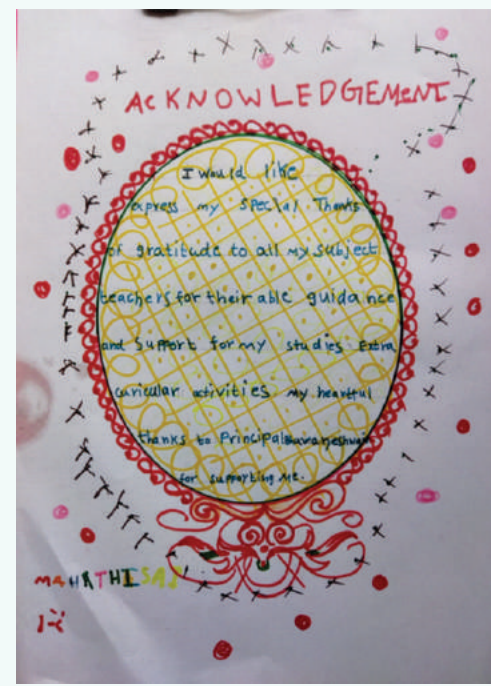 ACKNOWLEDGEMENT
I would like
express my special Thanks
of gratitude to all my subject
teachers for their able guidance
and support for my studies Extra
curicular activities my heartful
thanks to Principal
for supporting me.
MAHATHISAI